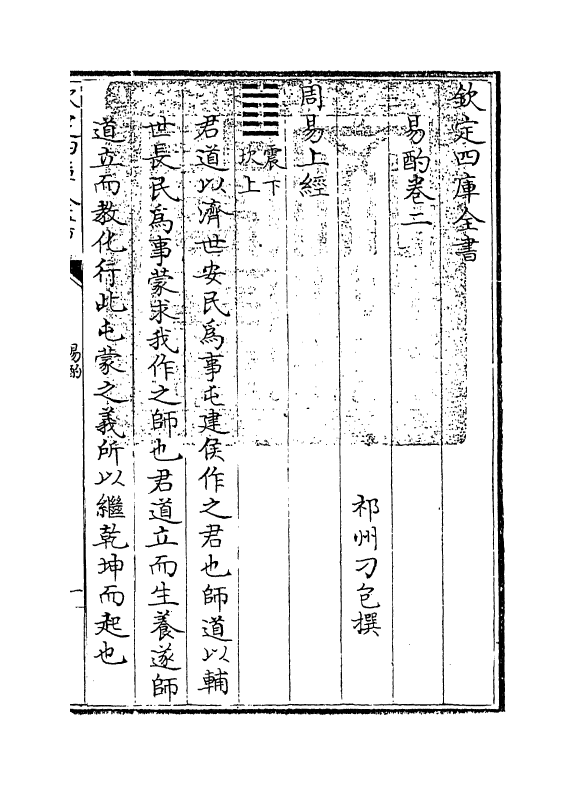 欽定四庫全書
易酌卷二
祁州刁包撰
周易上經
震下
坎上
君道以濟世安民為事屯建侯作之君也師道以輔
世長民為事蒙求我作之師也君道立而生養遂師
道立而教化行此屯蒙之義所以繼乾坤而起也
易酌
一